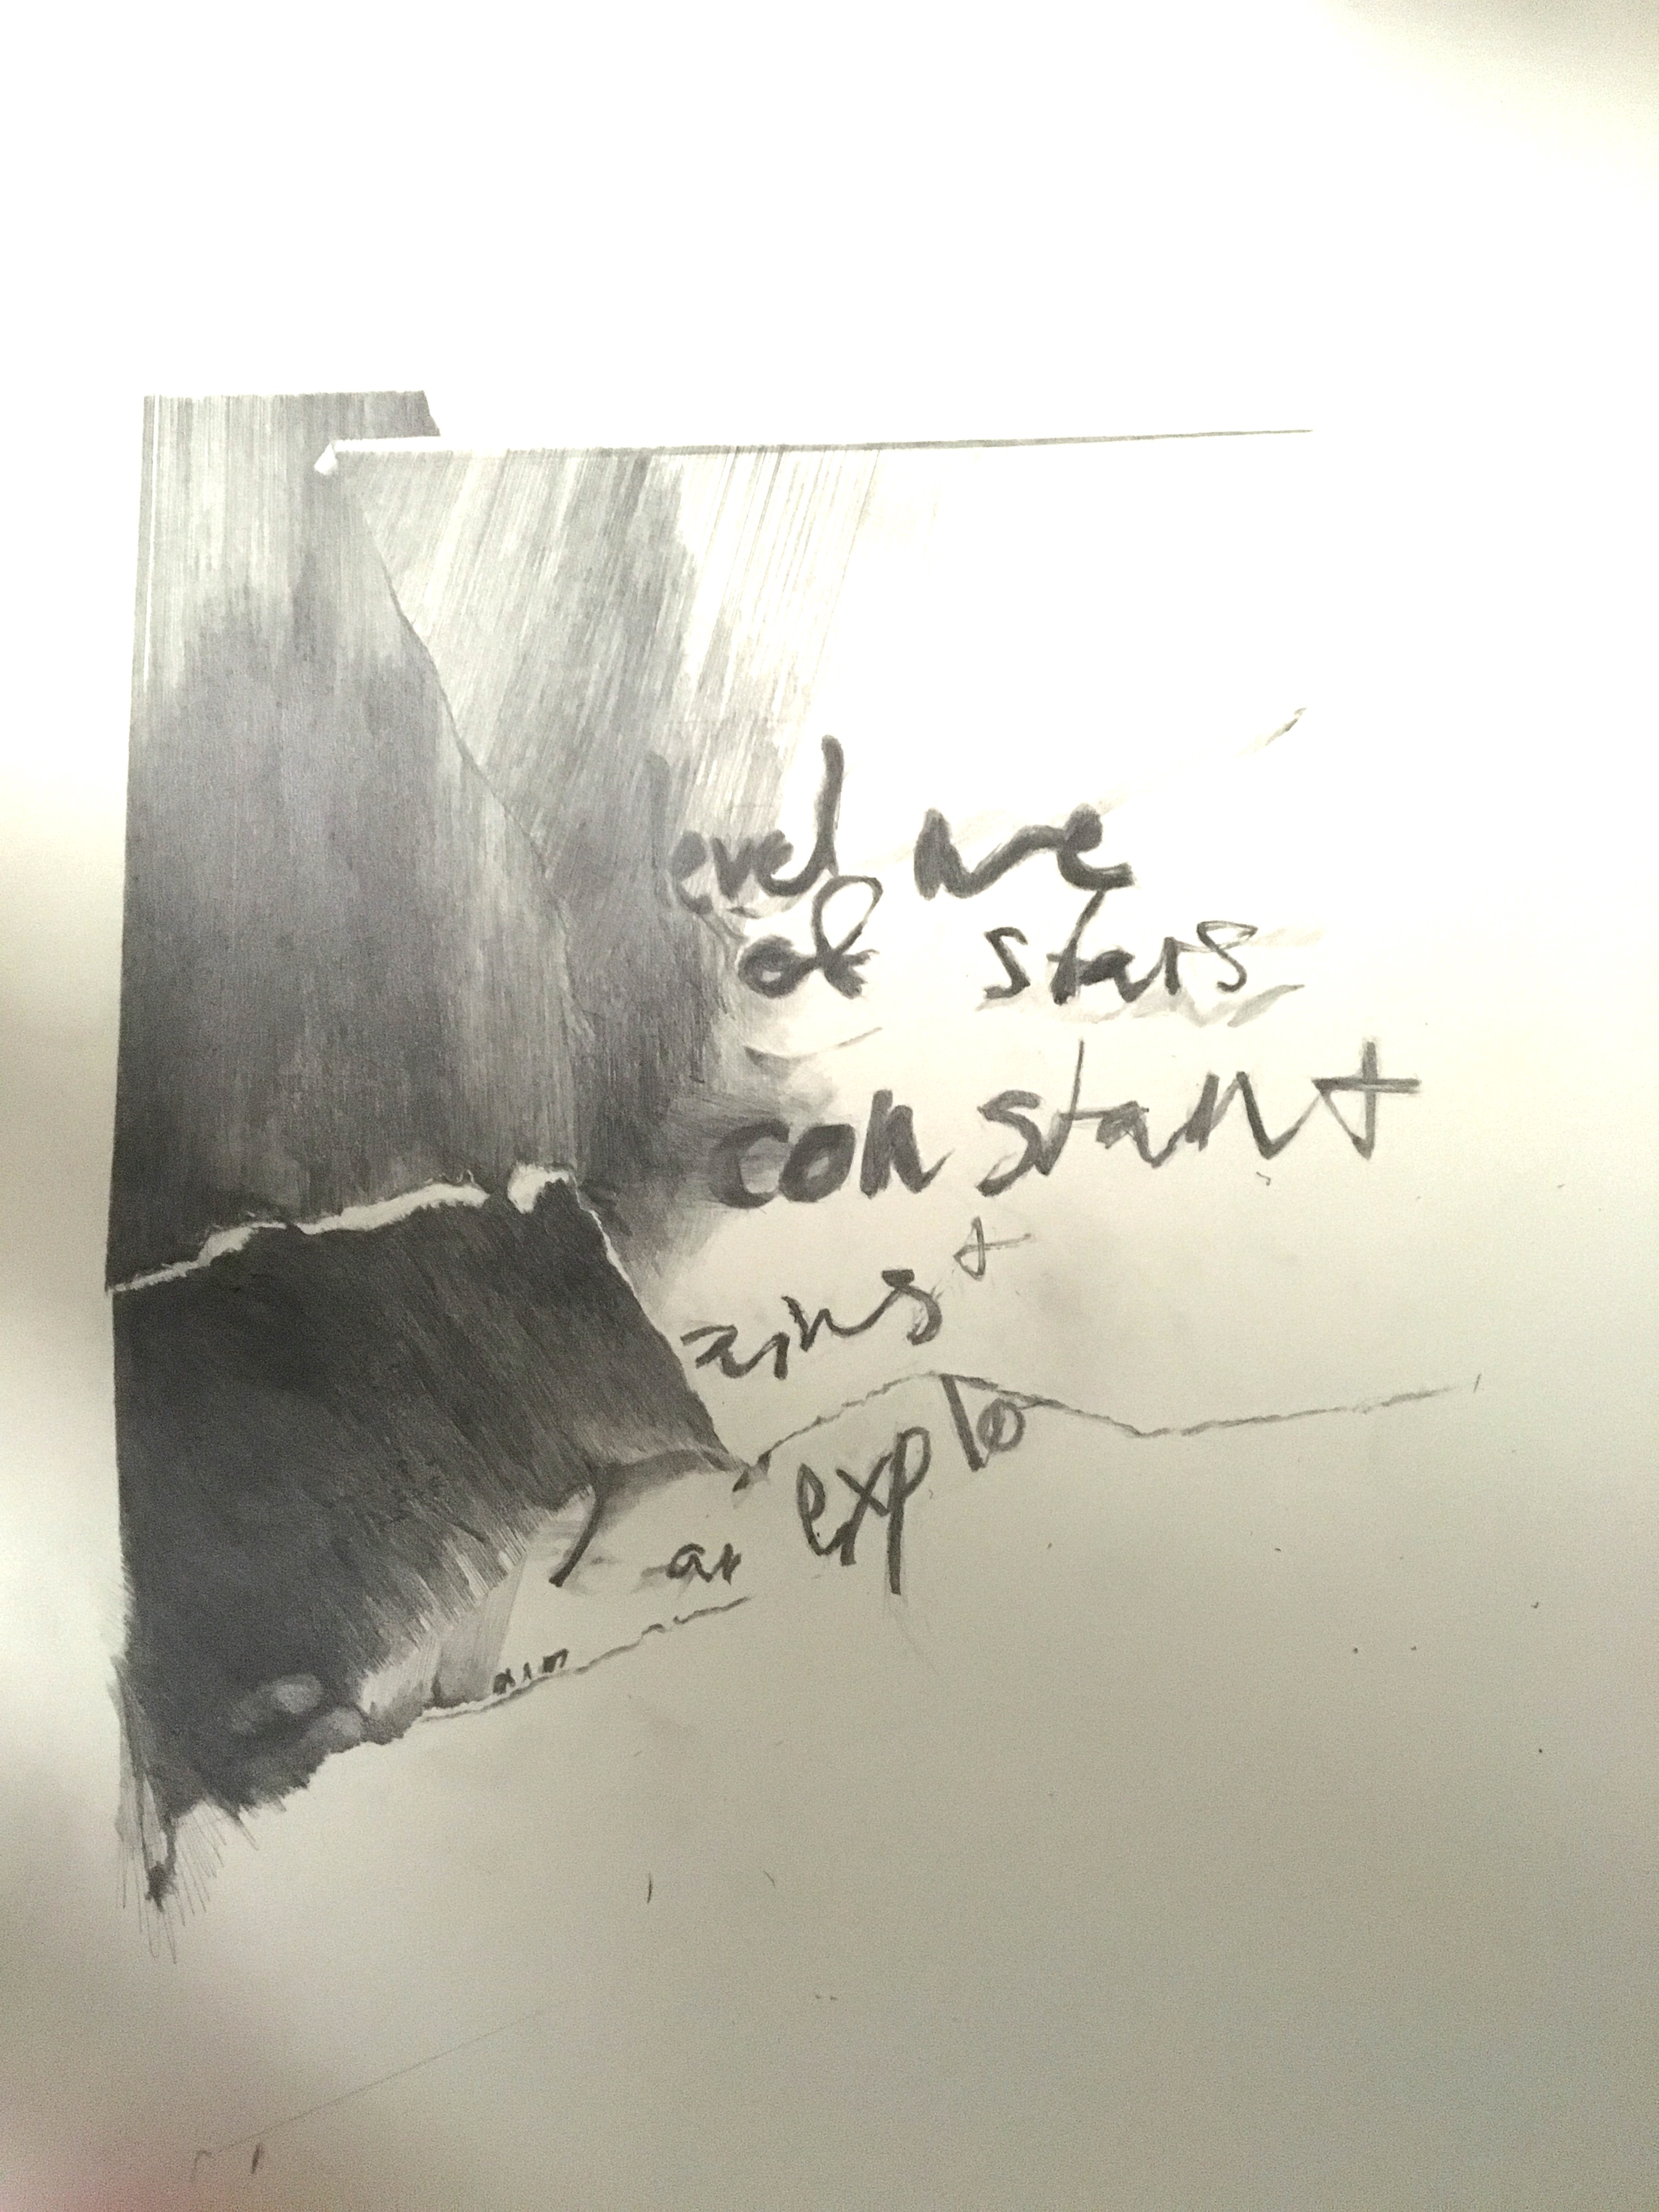 level are
of stars
constant
ainst
explo